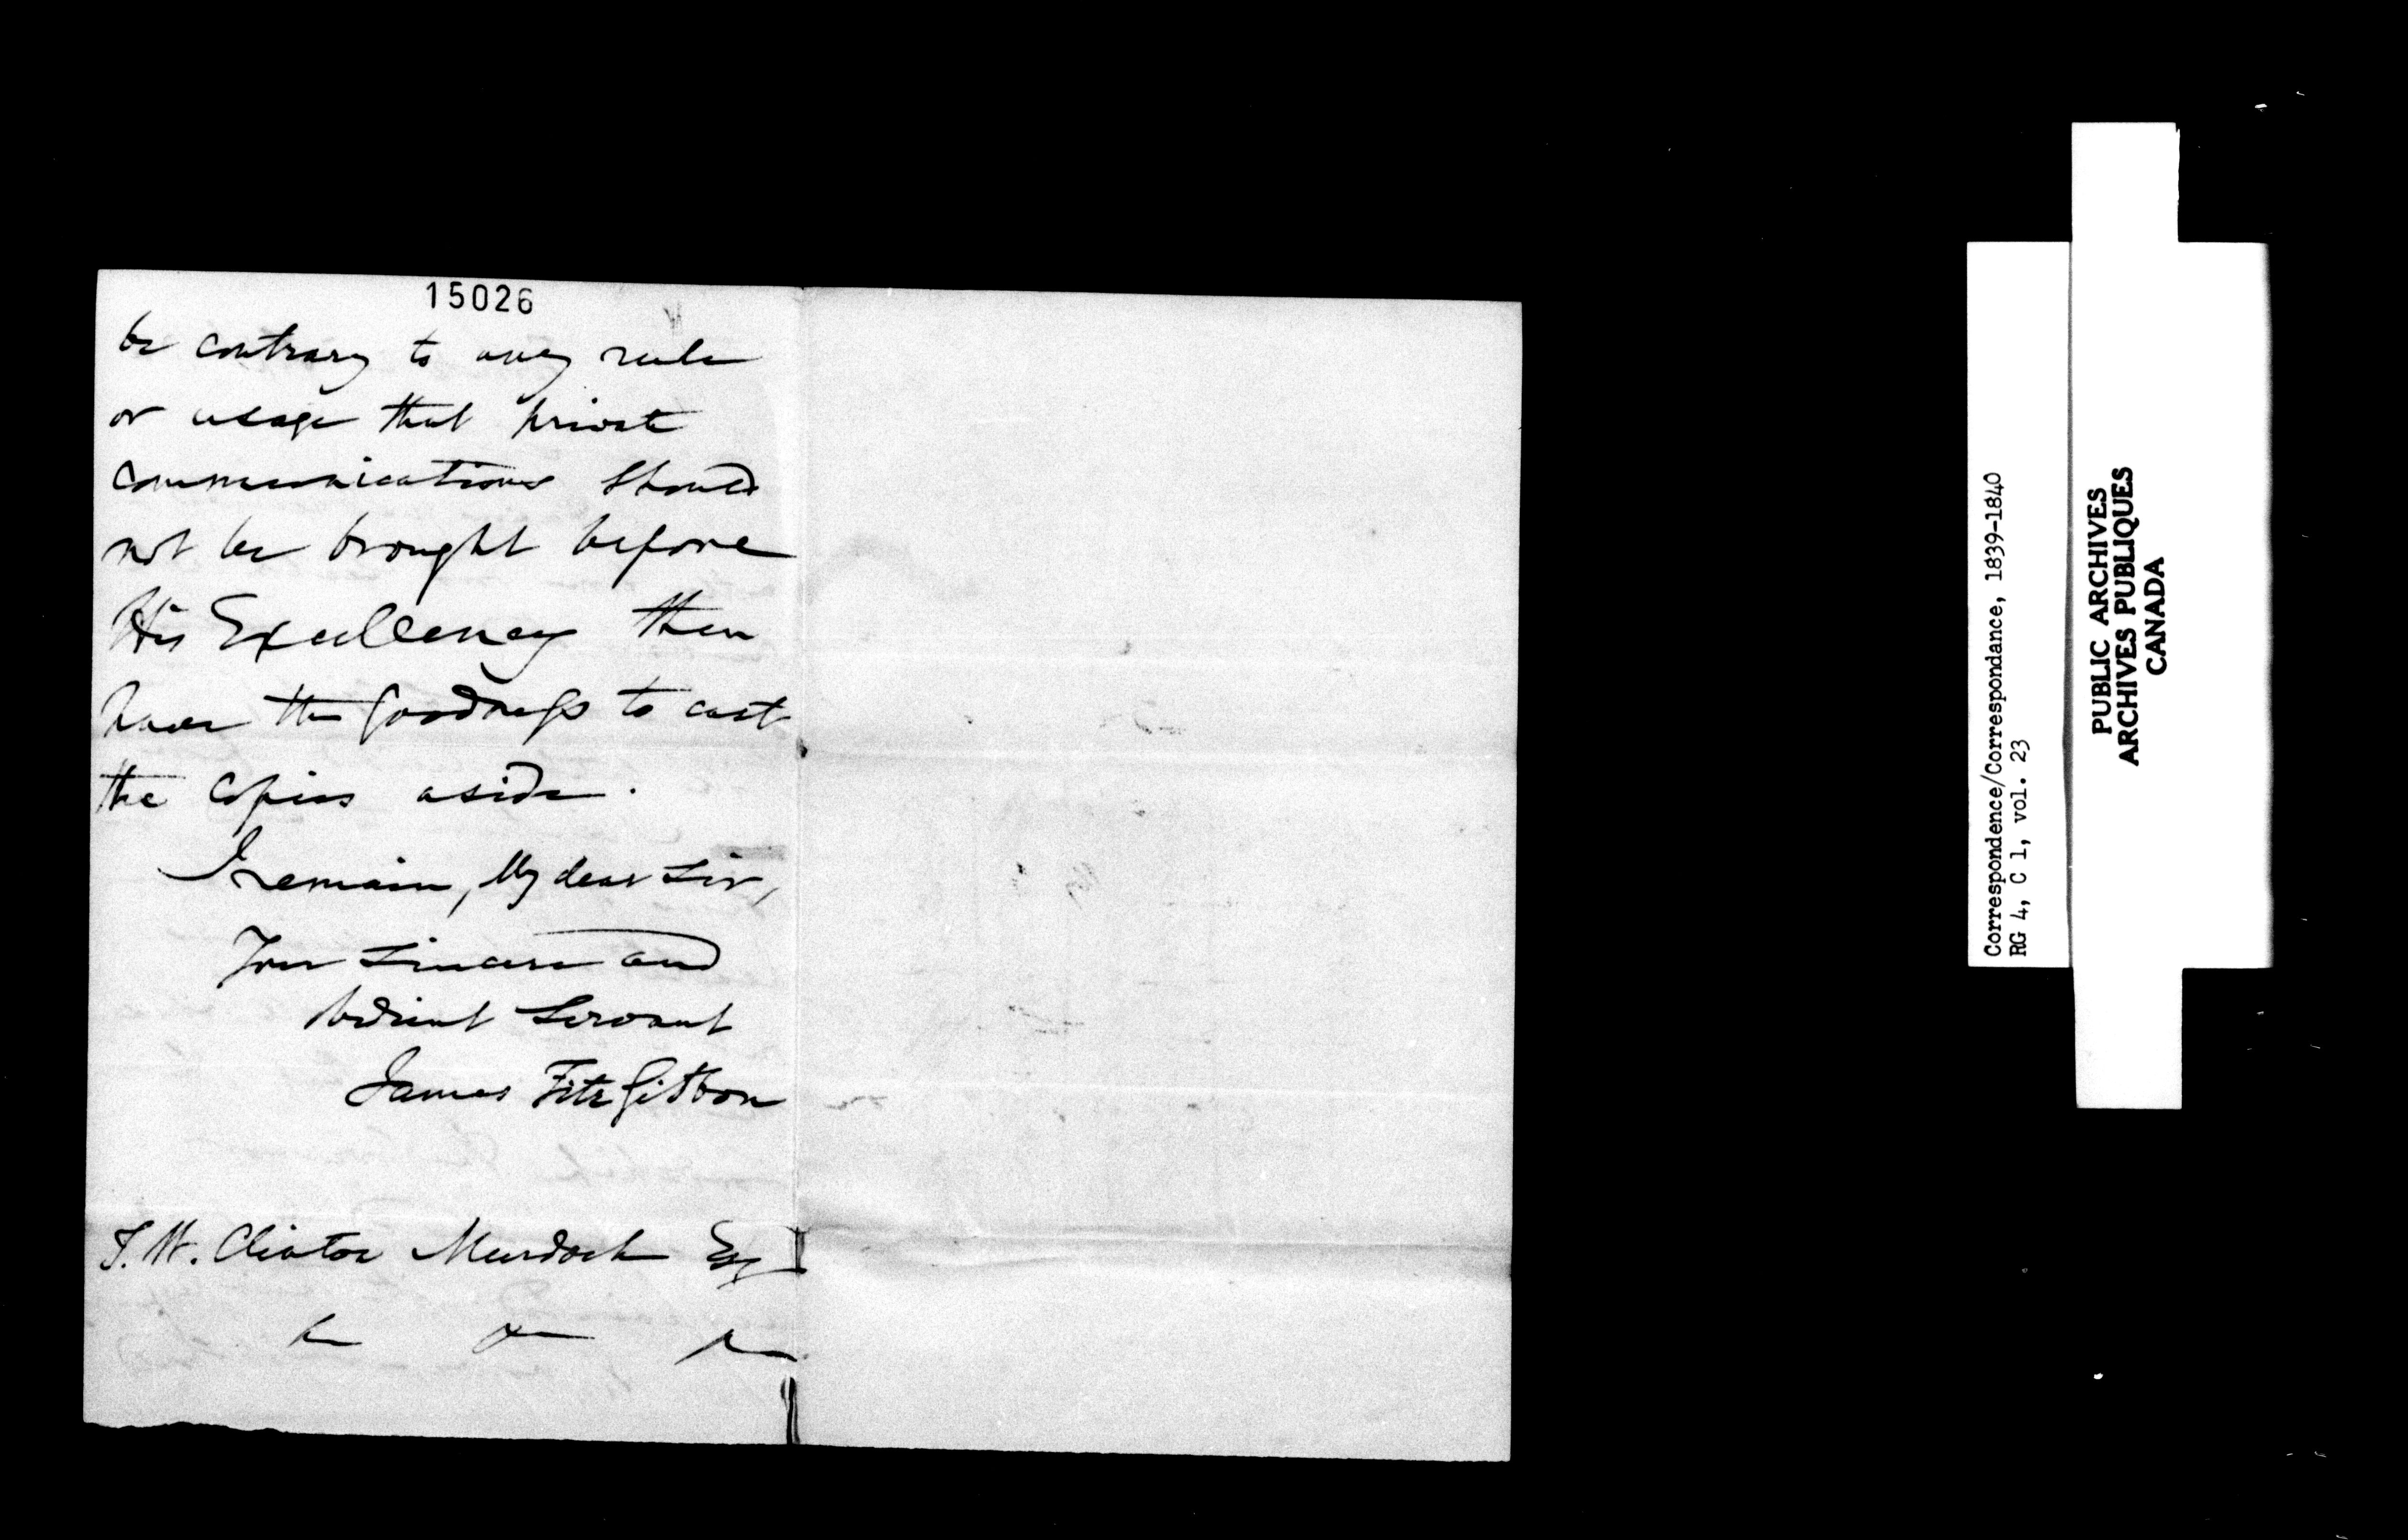 15026
be contrary to any rule
or usage that private
communications should
not be brought before
His Excellency then
have the goodness to cast
the copies aside.
I remain, My dear Sir,
Your Sincere and
obedient Servant
James FitzGibbon
T. W. Clinton Murdoch Esq
&c &c &c
Correspondence/Correspondance, 1839-1840
RG 4, C 1, vol. 23
PUBLIC ARCHIVES
ARCHIVES PUBLIQUES
CANADA